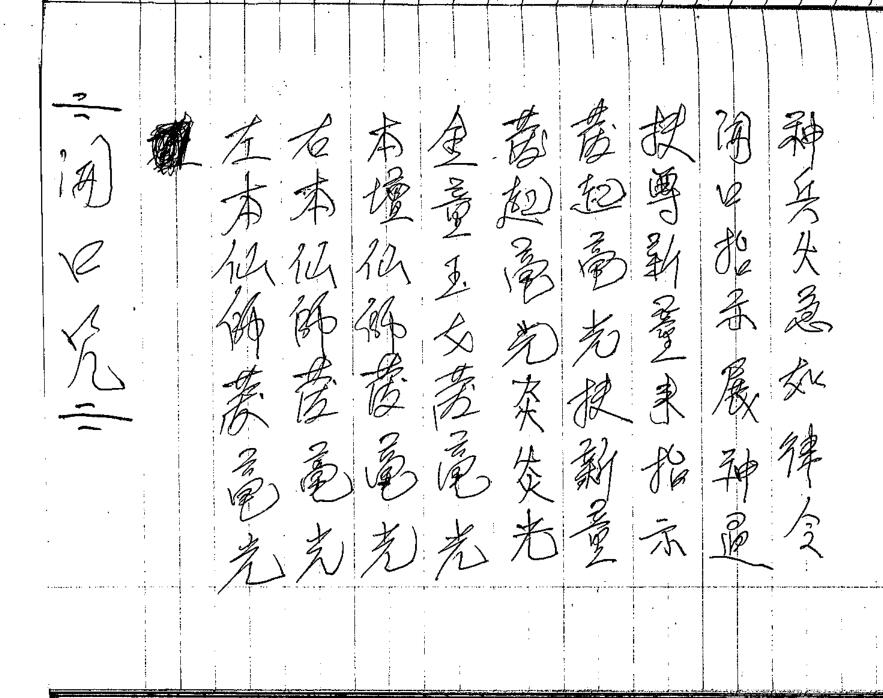 開口咒
左本仙師發毫光
右本仙師發毫光
本壇仙師發毫光
金童玉女發毫光
發起毫光炎炎光
發起毫光扶新童
扶尊新童來指示
開口指示展神通
神兵火急如律令